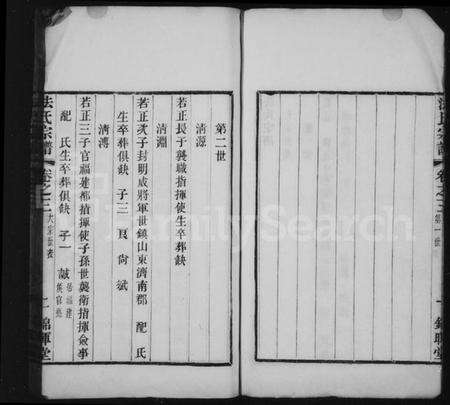 法氏宗譜
卷之三
第一世
一
錦暉堂
第二世
清源
若正長子襲職指揮使生卒葬缺
清淵
若正次子封明威將軍世鎮山東濟南郡 配 氏
生卒葬俱缺 子三 艮 尙 斌
清溥
若正三子官福建都指揮使子孫世襲衛指揮僉事
配 氏生卒葬俱缺 子一 㪺
法氏宗譜
卷之三
大宗世表
二
錦暉堂
FamilySearch